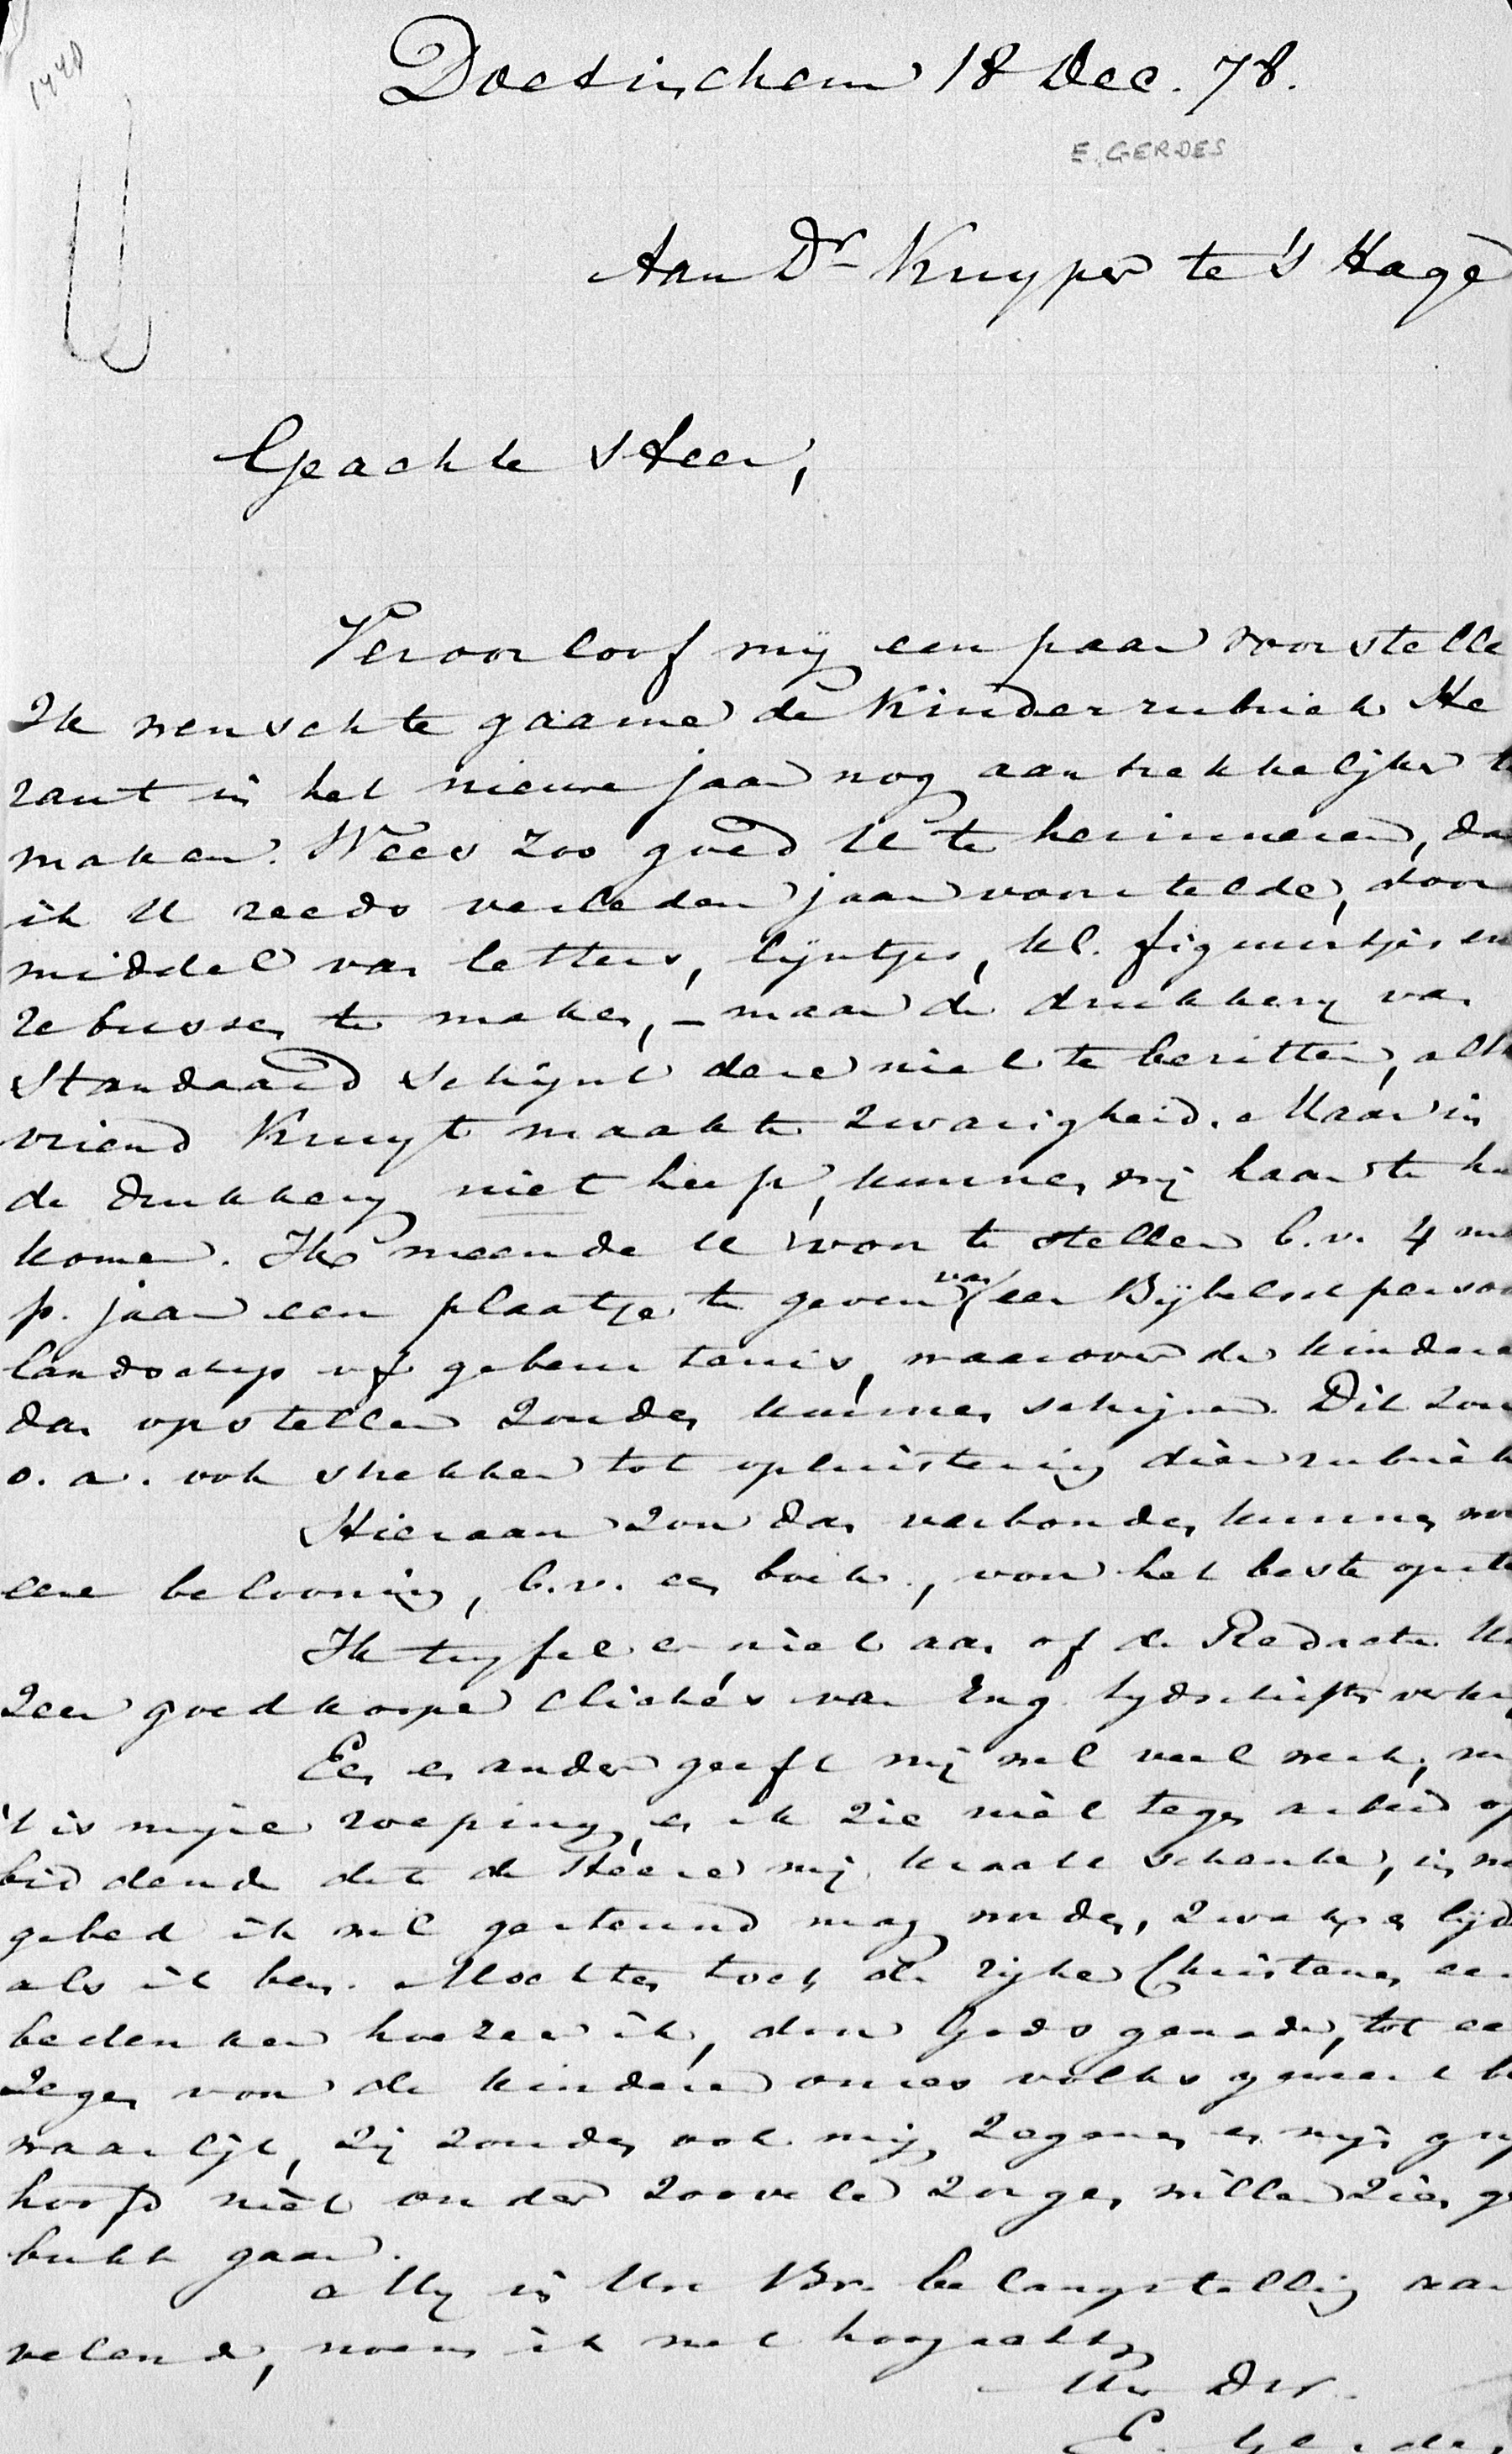 1448
Doetinchem 18 Dec. 78.
E. GERDES
Aan Dr Kuyper te 's Hage
Geachte Heer,
Veroorloof mij een paar voorstelle
Ik wenschte gaarne de Kinderrubriek He
raut in het nieuwe jaar nog aantrekkelijker te
maken. Wees zoo goed U te herinneren, da
ik U reeds verleden jaar voorstelde, door
middel van letters, lijntjes, kl. figuurtjes en
rebussen te maken, – maar de drukkerij van
Standaard schijnt deze niet te bezitten, alth
vriend Kruyt maakte zwarigheid. Maar in
de drukkerij niet heeft, kunnen wij haar te hu
komen. Ik meende U voor te stellen b.v. 4 ma
p. jaar een plaatje te geven van een Bijbelsch persoo
landschap of gebeurtenis, waarover de kindere
dan opstellen zouden kunnen schrijven. Dit zou
o.a. ook strekken tot opluistering dier rubriek
Hieraan zou dan verbonden kunnen wo
eene belooning, b.v. een boek, voor het beste opste
Ik twyfel er niet aan of de Redactie ka
zeer goedkoope clichés van Eng. tydschriften verkrij
Een en ander geeft mij wel veel werk, ma
't is mijne roeping, en ik zie niet tegen arbeid op
biddende dat de Heere mij kracht schenke, in we
gebed ik wel gesteund mag worden, zwak en lijd
als ik ben. Mochten toch de rijke Christenen ee
bedenken hoezeer ik, door Gods genade, tot ee
zegen voor de kinderen onzes volks gewerkt he
waarlijk, zij zouden ook mij zegenen en mijn grij
hoofd niet onder zoovele zorgen willen zien ge
bukt gaan.
My in Uw Br. belangstelling aan
velend, noem ik met hoogachting
Uw Dw.
E. Gerdes